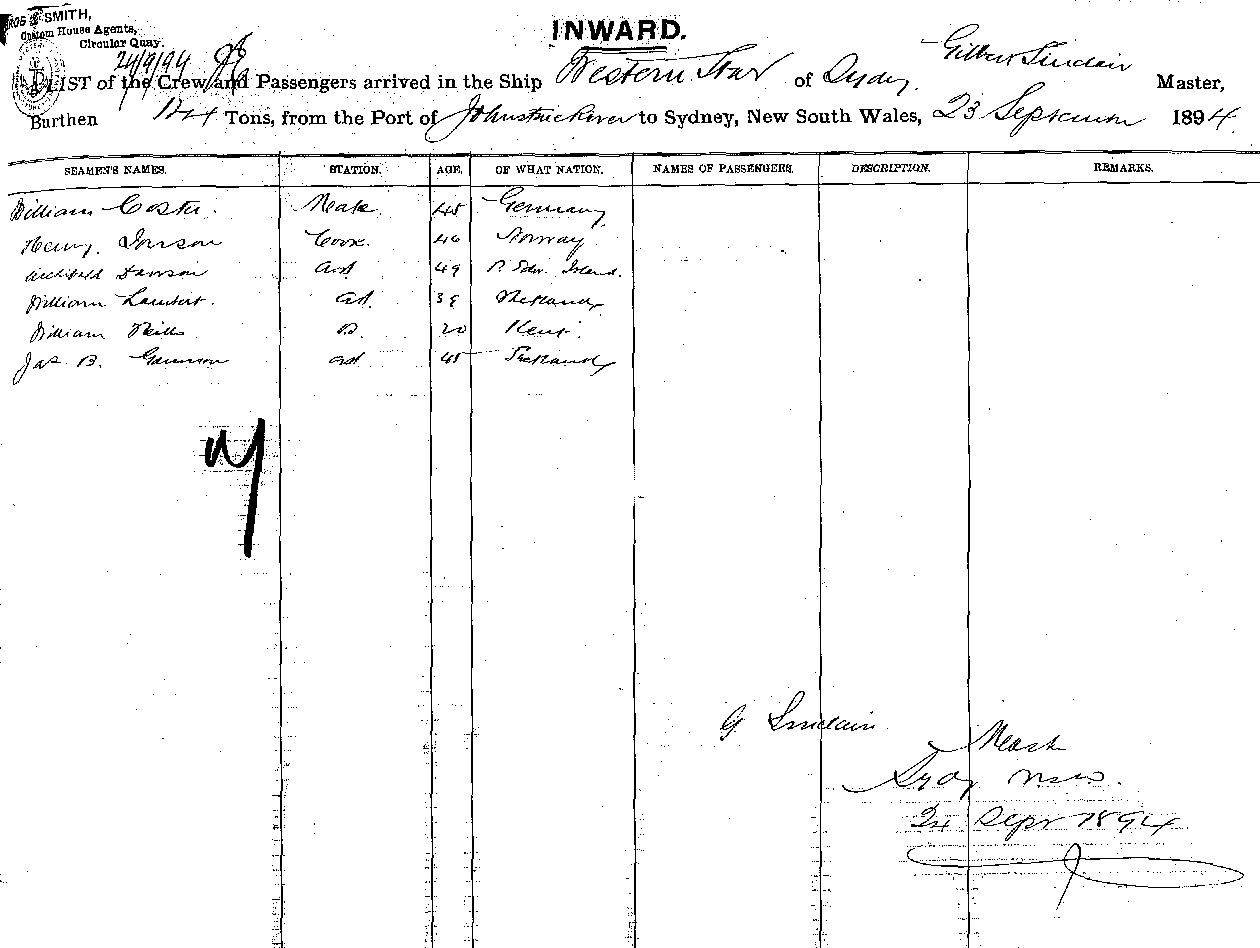 SMITH,
Custom House Agents,
Circular Quay.
24/9/94
INWARD.
LIST of the Crew and Passengers arrived in the Ship Western Star of Sydney, Gilbert Sinclair Master,
Burthen Tons, from the Port of Johnstone River to Sydney, New South Wales, 23 September 1894.
SEAMEN'S NAMES. STATION. AGE. OF WHAT NATION. NAMES OF PASSENGERS. DESCRIPTION. REMARKS.
William Mate 45 Germany
Henry Cook. 46 Norway
Archibald Dawson 49 P. Edw. Island.
William Lambert. 38 Shetland
William 20 Kent.
Jas B. 45 Shetland
G Sinclair
Mast
Sydy NSW.
24 Sept 1894